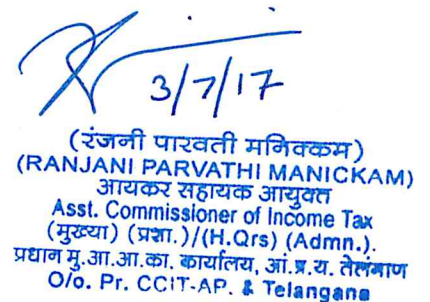 3/7/17
(रंजनी पारवती मनिक्कम)
(RANJANI PARVATHI MANICKAM)
आयकर सहायक आयुक्त
Asst. Commissioner of Income Tax
(मुख्या) (प्रशा.)/(H.Qrs) (Admn.).
प्रधान मु.आ.आ.का. कार्यालय, आं.प्र.य. तेलंगाण
O/o. Pr. CCIT-AP. & Telangana